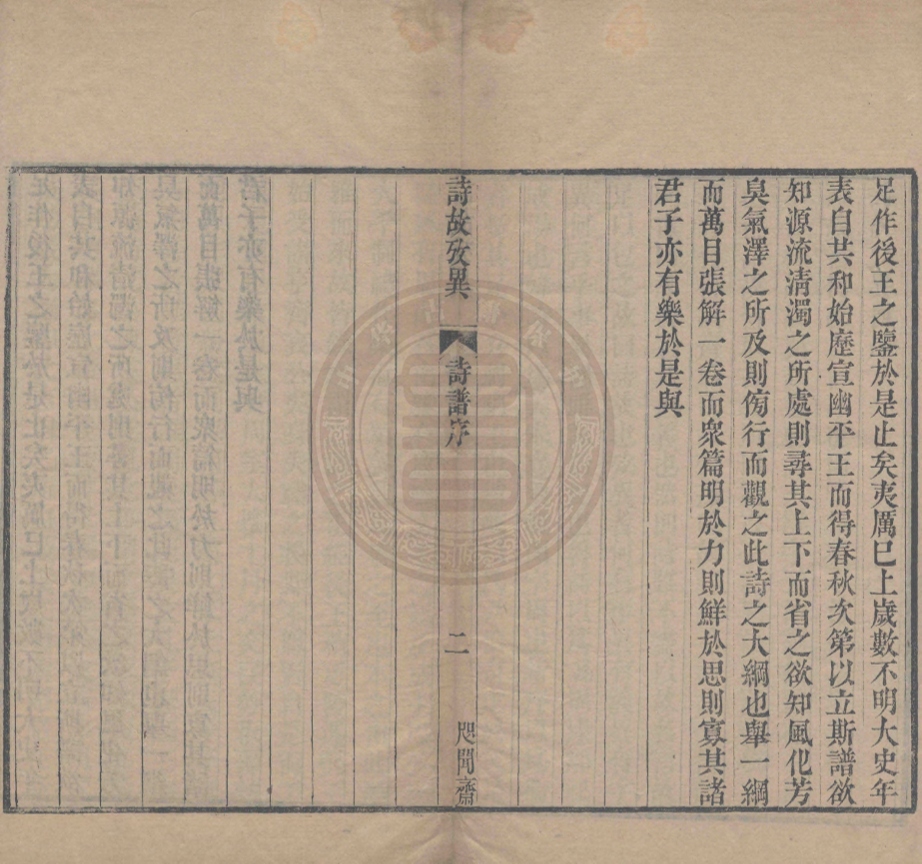 足作後王之鑒於是止矣夷厲巳上歲數不明大史年
表自共和始歷宣幽平王而得春秋次第以立斯譜欲
知源流清濁之所處則尋其上下而省之欲知風化芳
臭氣澤之所及則傍行而觀之此詩之大綱也舉一綱
而萬目張解一卷而眾篇明於力則鮮於思則寡其諸
君子亦有樂於是與
詩故攷異
詩譜序
二
咫聞齋